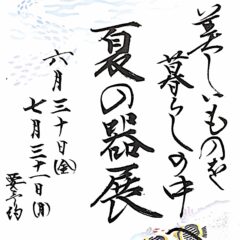 美しいものを
暮らしの中へ
夏の器展
六月三十日(金)
七月三十一日(月)